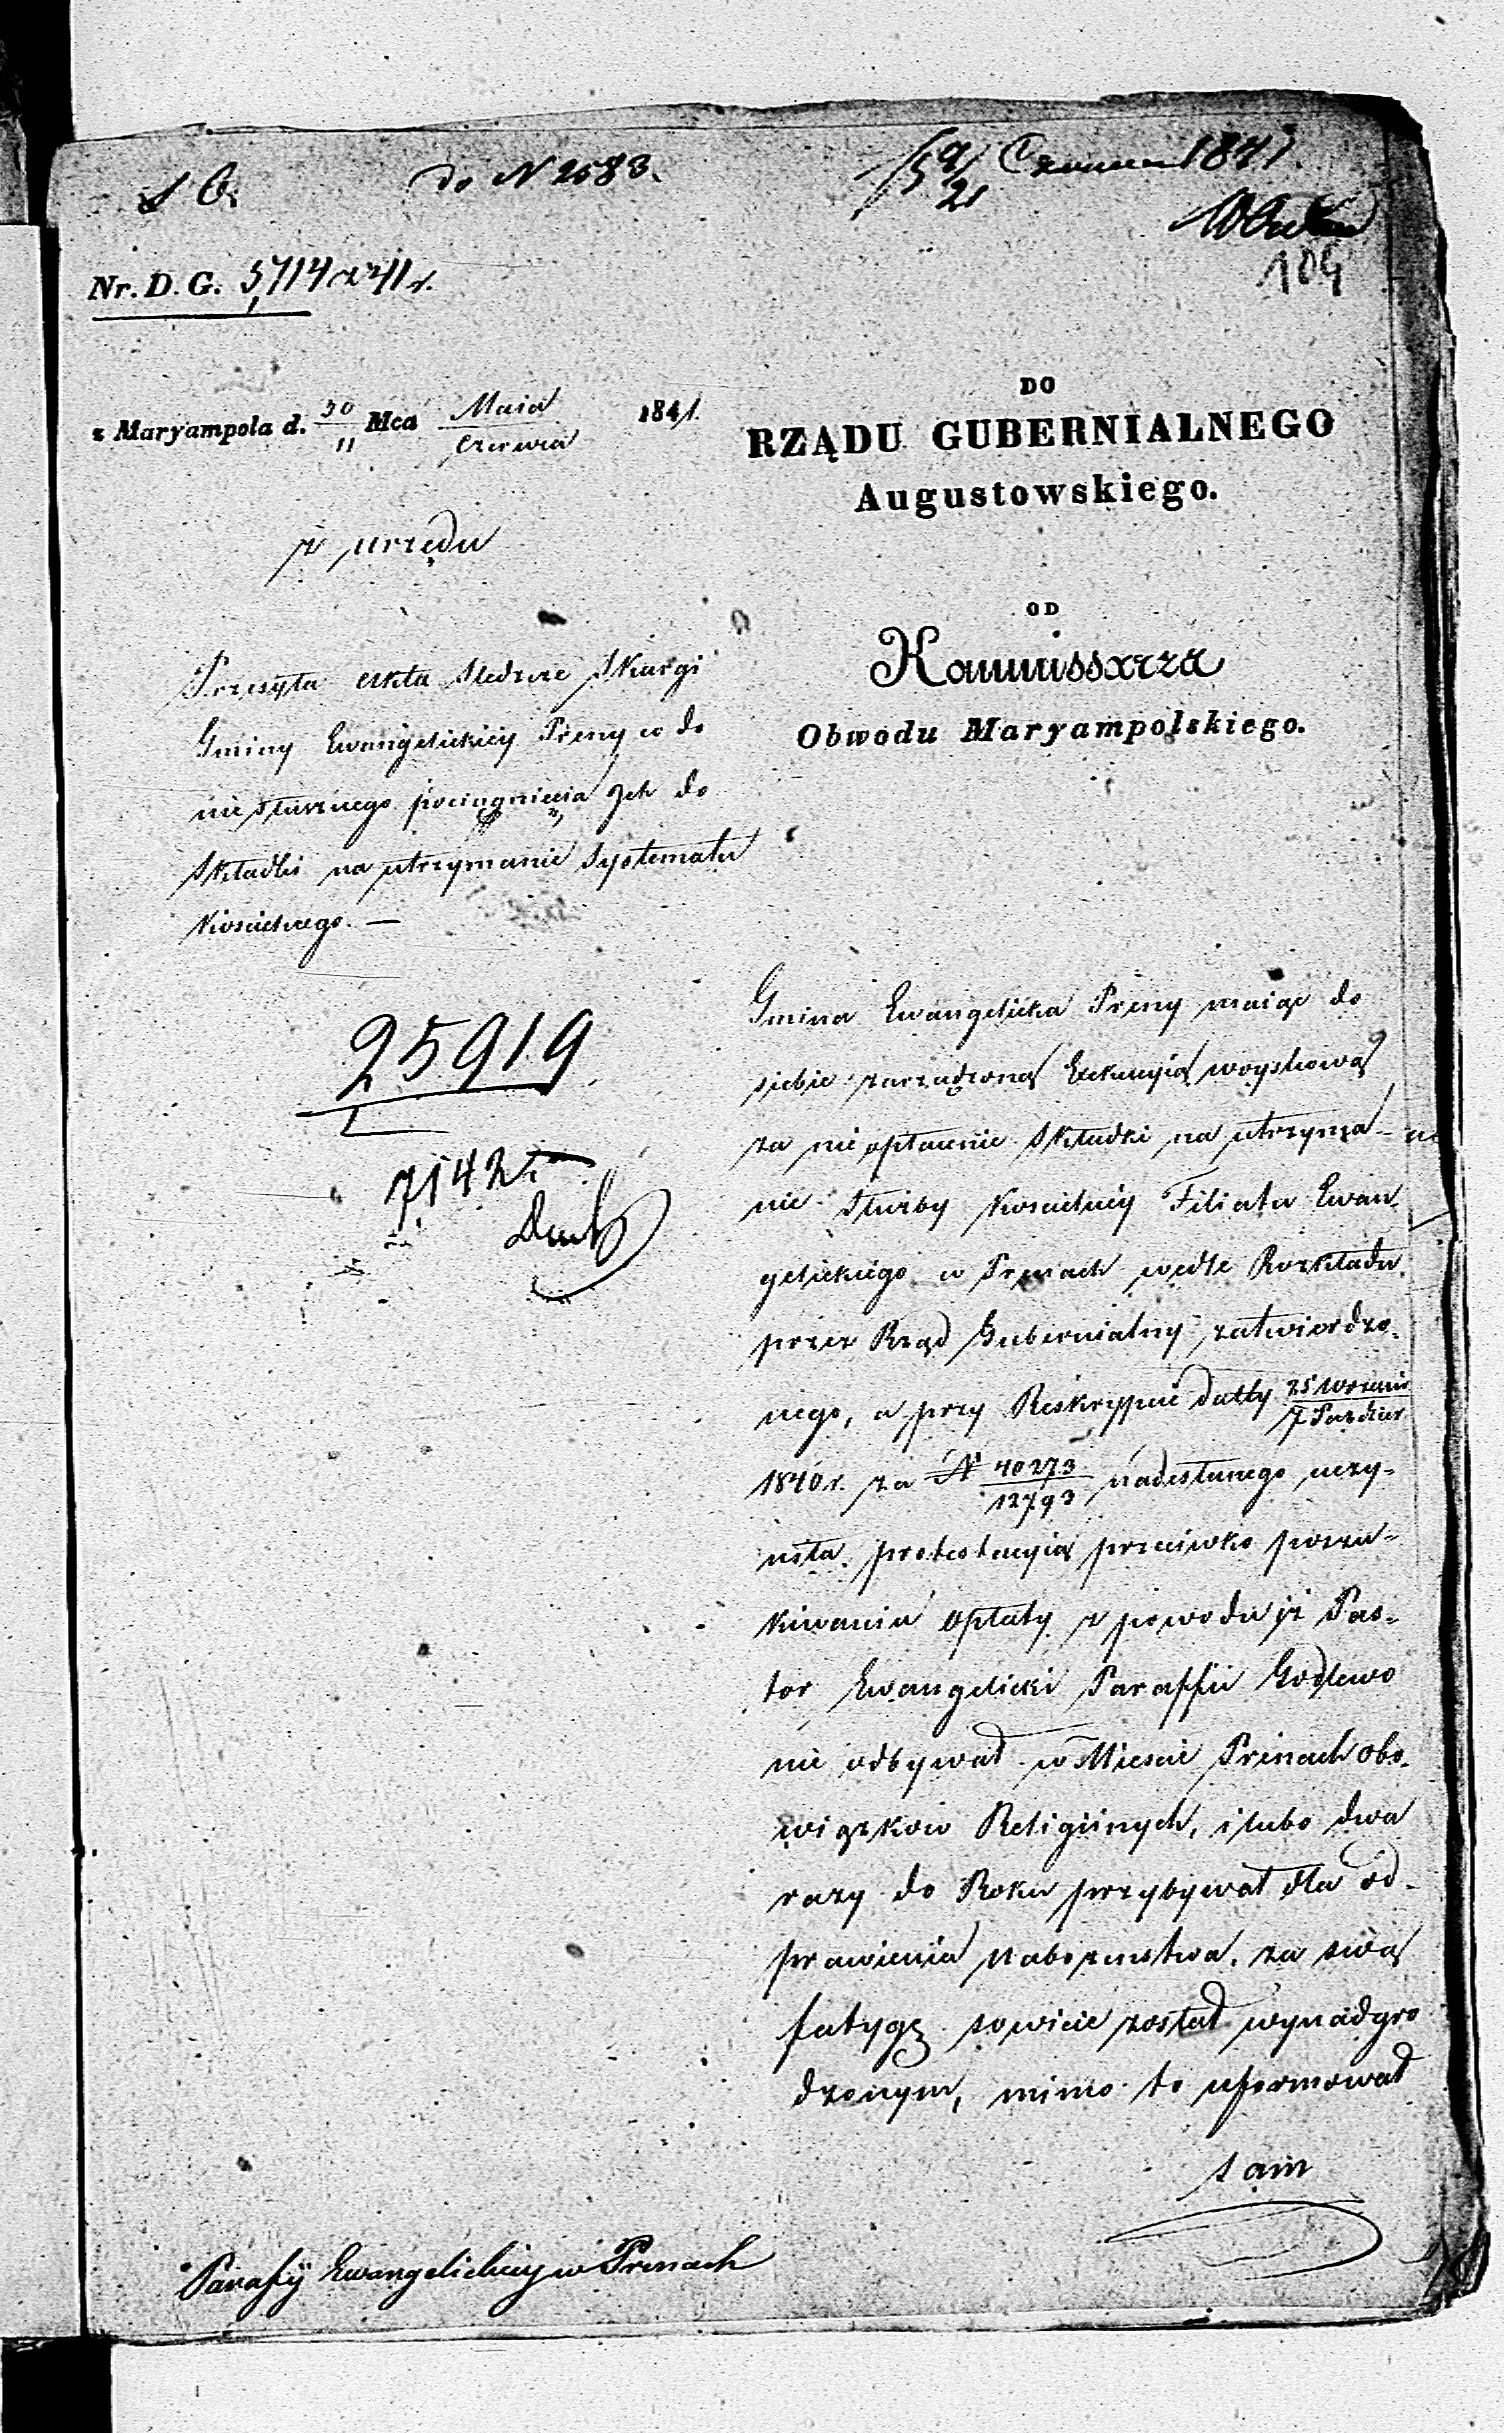 do N 2583.
9/21 Czerwca 1841.
109
Nr. D. G. 5714 z 41 r.
z Maryampola d. 30/11 Mca Maia/Czerwca 1841.
z urzędu
DO
RZĄDU GUBERNIALNEGO
Augustowskiego.
OD
Kommissarza
Obwodu Maryampolskiego.
Przesyła akta śledcze Skargi
Gminy Ewangelickiey Preny co do
niesłusznego pociągnięcia Ich do
Składki na utrzymanie Systematu
Kościelnego. —
25919
7142
Gmina Ewangelicka Preny maiąc do
siebie zarządzoną Exekucyią woyskową
za nieopłacenie Składki na utrzyma-
nie Służby Kościelney Filiału Ewan-
gelickiego w Prenach wedle Rozkładu
przez Rząd Gubernialny zatwierdzo-
nego, a przy Reskrypcie datty 25 Wrześnis/7 Paździer
1840 r. za N 40273/12793 nadesłanego uczy-
niła protestacyią przeciwko poszu-
kiwaniu opłaty z powodu iż Pas-
tor Ewangelicki Paraffii Godlewo
nie odbywał w Mieście Prenach obo-
wiązków Religiinych, i lubo dwa
razy do Roku przybywał dla od-
prawienia Nabożeństwa, za swą
fatygę sowicie został wynadgro
dzonym, mimo to uformował
sam
Parafij Ewangelickiey w Prenach